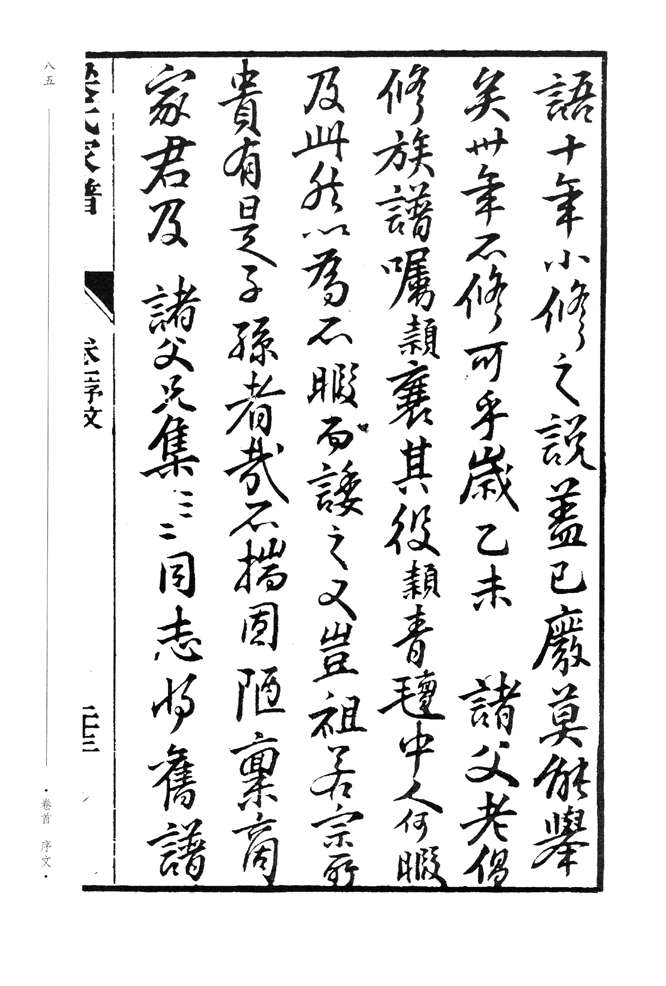 語十年小修之説蓋已廢莫能舉
矣卅年不修可乎歲乙未 諸父老倡
修族譜囑穎襄其役穎青氊中人何暇
及此然以為不暇而諉之又豈祖若宗所
貴有是子孫者哉不揣固陋稟商
家君及 諸父兄集二三同志將舊譜
氏家譜
卷一序文
二十三
八五
·卷首 序文·